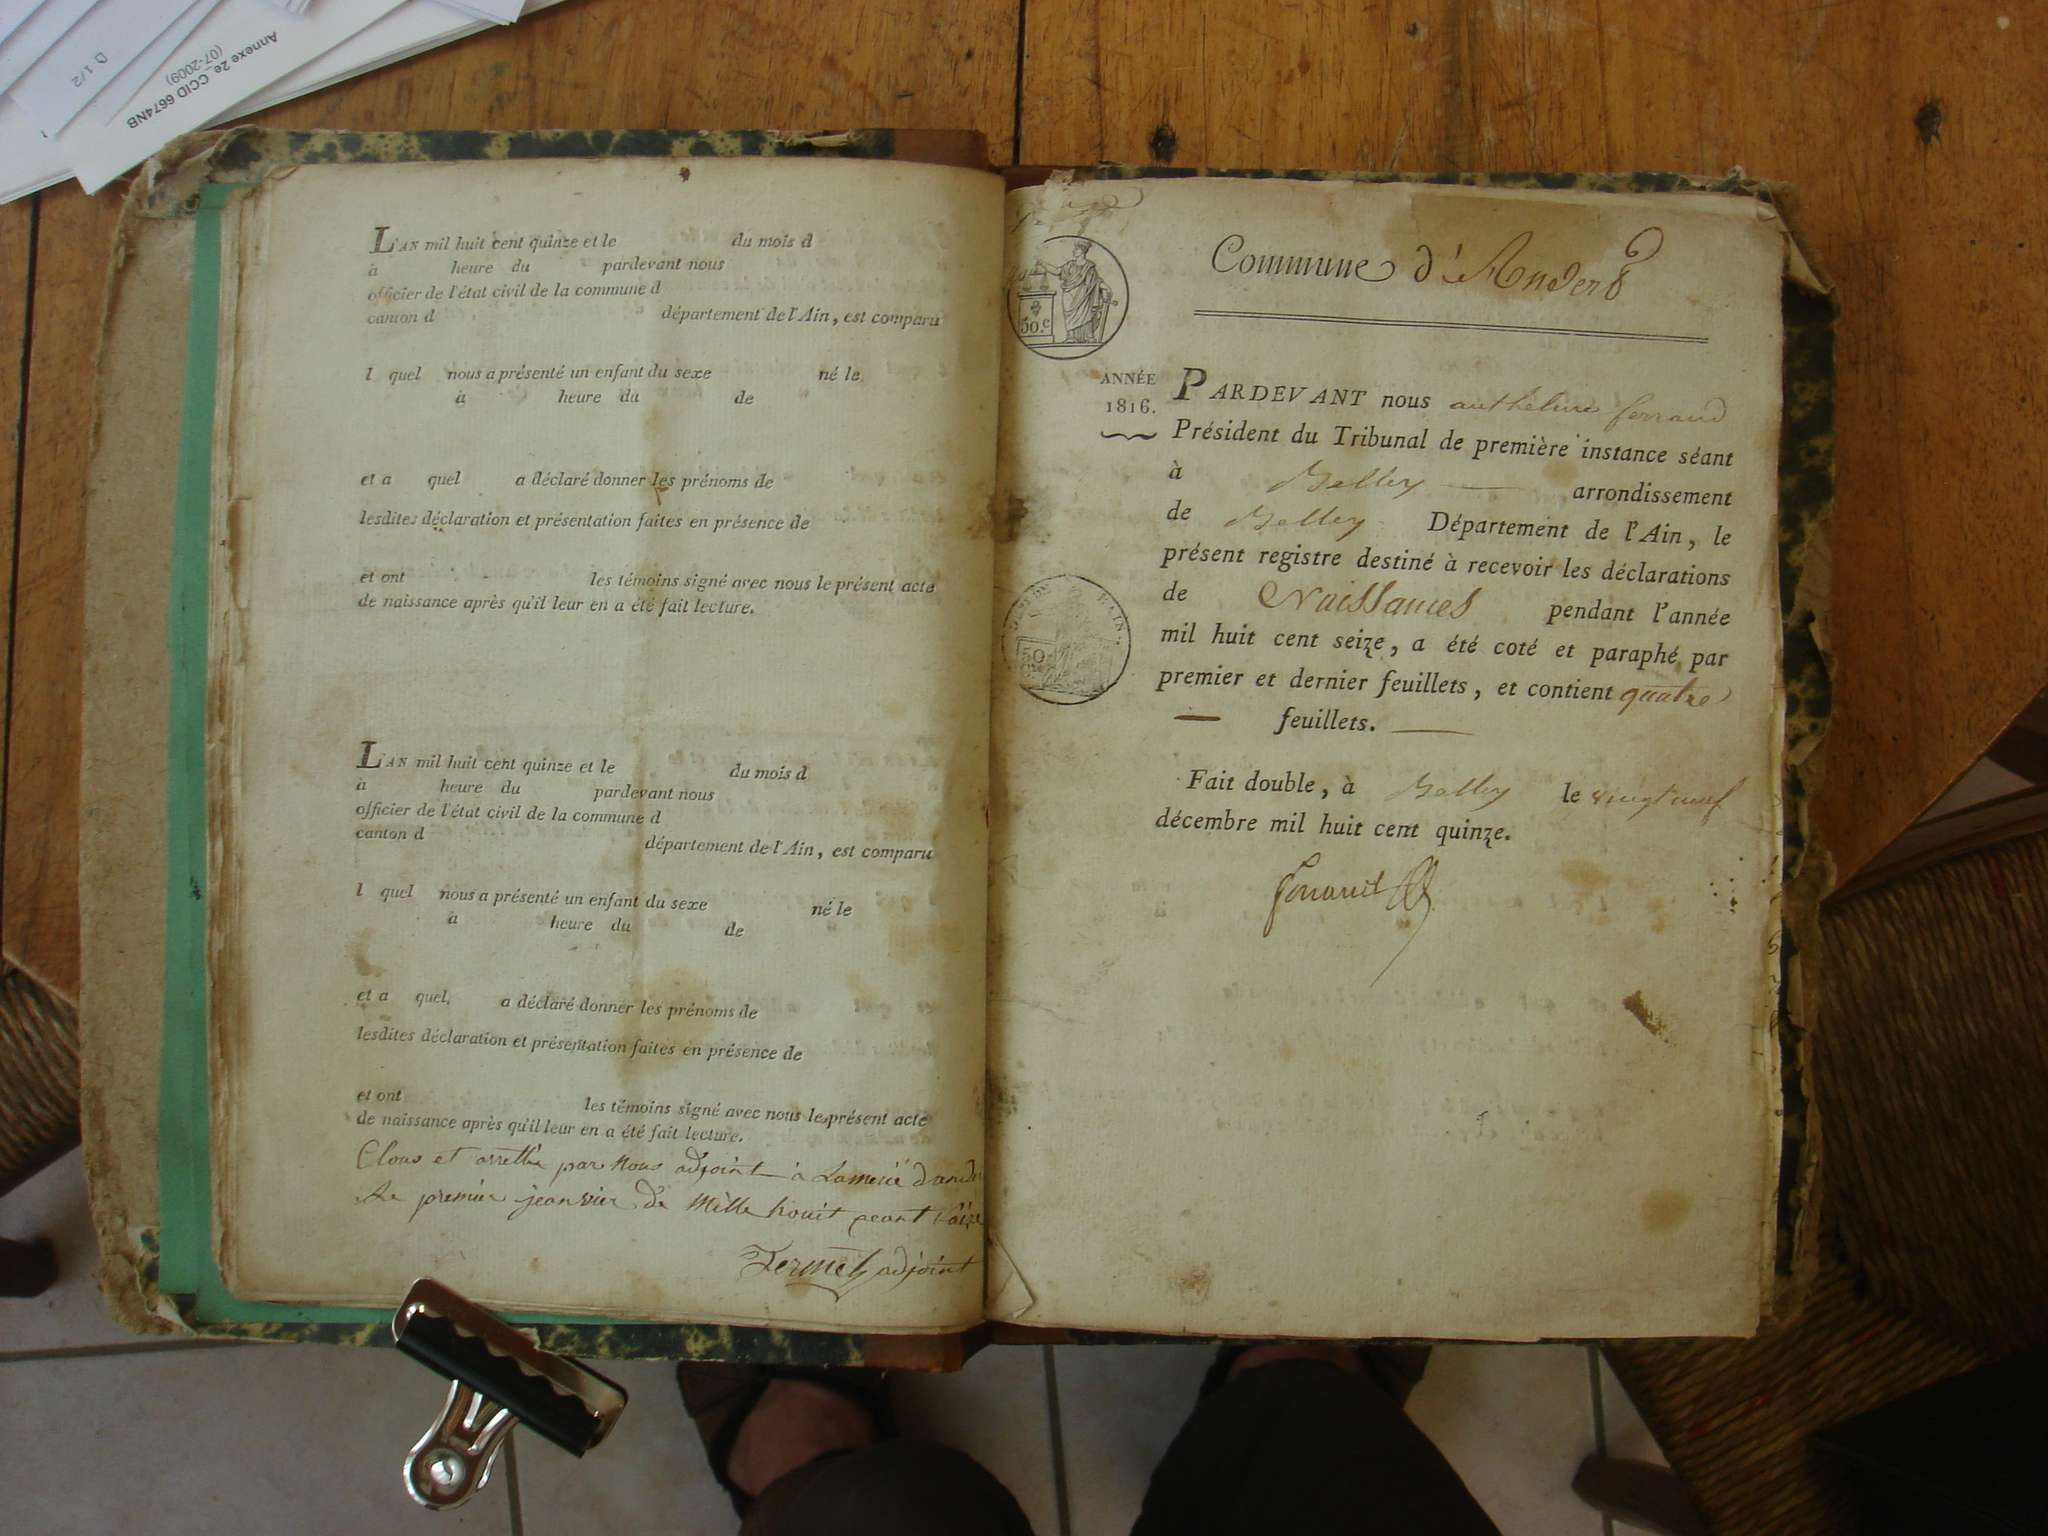 Annexe 2e_CCID 6674NB
(07-2009)
1/2
L'AN mil huit cent quinze et le du mois d
à heure du pardevant nous
officier de l'état civil de la commune d
canton d département de l'Ain, est comparu
l quel nous a présenté un enfant du sexe né le
à heure du de
et a quel a déclaré donner les prénoms de
lesdites déclaration et présentation faites en présence de
et ont les témoins signé avec nous le présent acte
de naissance après qu'il leur en a été fait lecture.
L'AN mil huit cent quinze et le du mois d
à heure du pardevant nous
officier de l'état civil de la commune d
canton d département de l'Ain, est comparu
l quel nous a présenté un enfant du sexe né le
à heure du de
et a quel, a déclaré donner les prénoms de
lesdites déclaration et présentation faites en présence de
et ont les témoins signé avec nous le présent acte
de naissance après qu'il leur en a été fait lecture.
Clous et arretté par nous adjoint à Lamerië dander
Le premier jeanvier de mille houit ceant saize
adjoint
Commune d'Andert
50.c
ANNÉE
1816.
PARDEVANT nous anthelme ferrand
Président du Tribunal de première instance séant
à Belley arrondissement
de Belley Département de l'Ain, le
présent registre destiné à recevoir les déclarations
de Naissances pendant l'année
mil huit cent seize, a été coté et paraphé par
premier et dernier feuillets, et contient quatre
feuillets.
50
Fait double, à Belley le vingt neuf
décembre mil huit cent quinze.